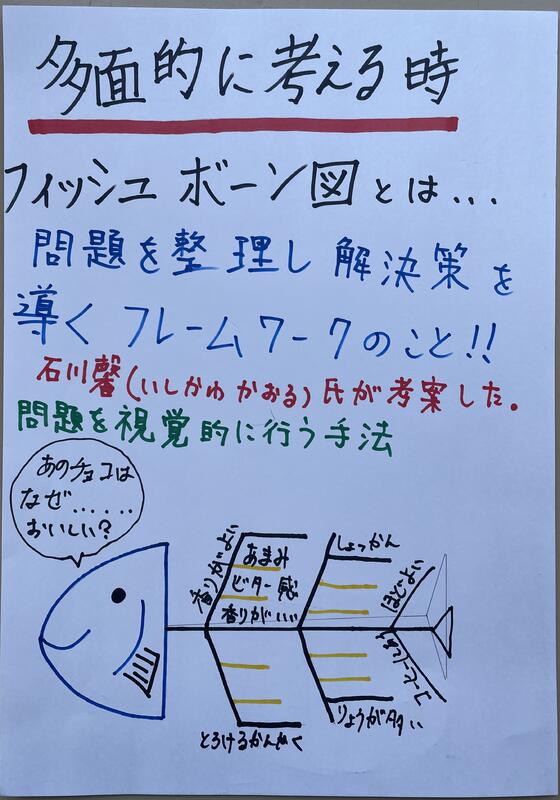 多面的に考える時
フィッシュボーン図とは...
問題を整理し解決策を
導くフレームワークのこと!!
石川馨(いしかわかおる)氏が考案した。
問題を視覚的に行う手法
あのチョコは
なぜ......
おいしい?
香りがよい
あまみ
ビター感
香りがいい
しょっかん
ほどよい
とろけるかんかく
りょうが多い